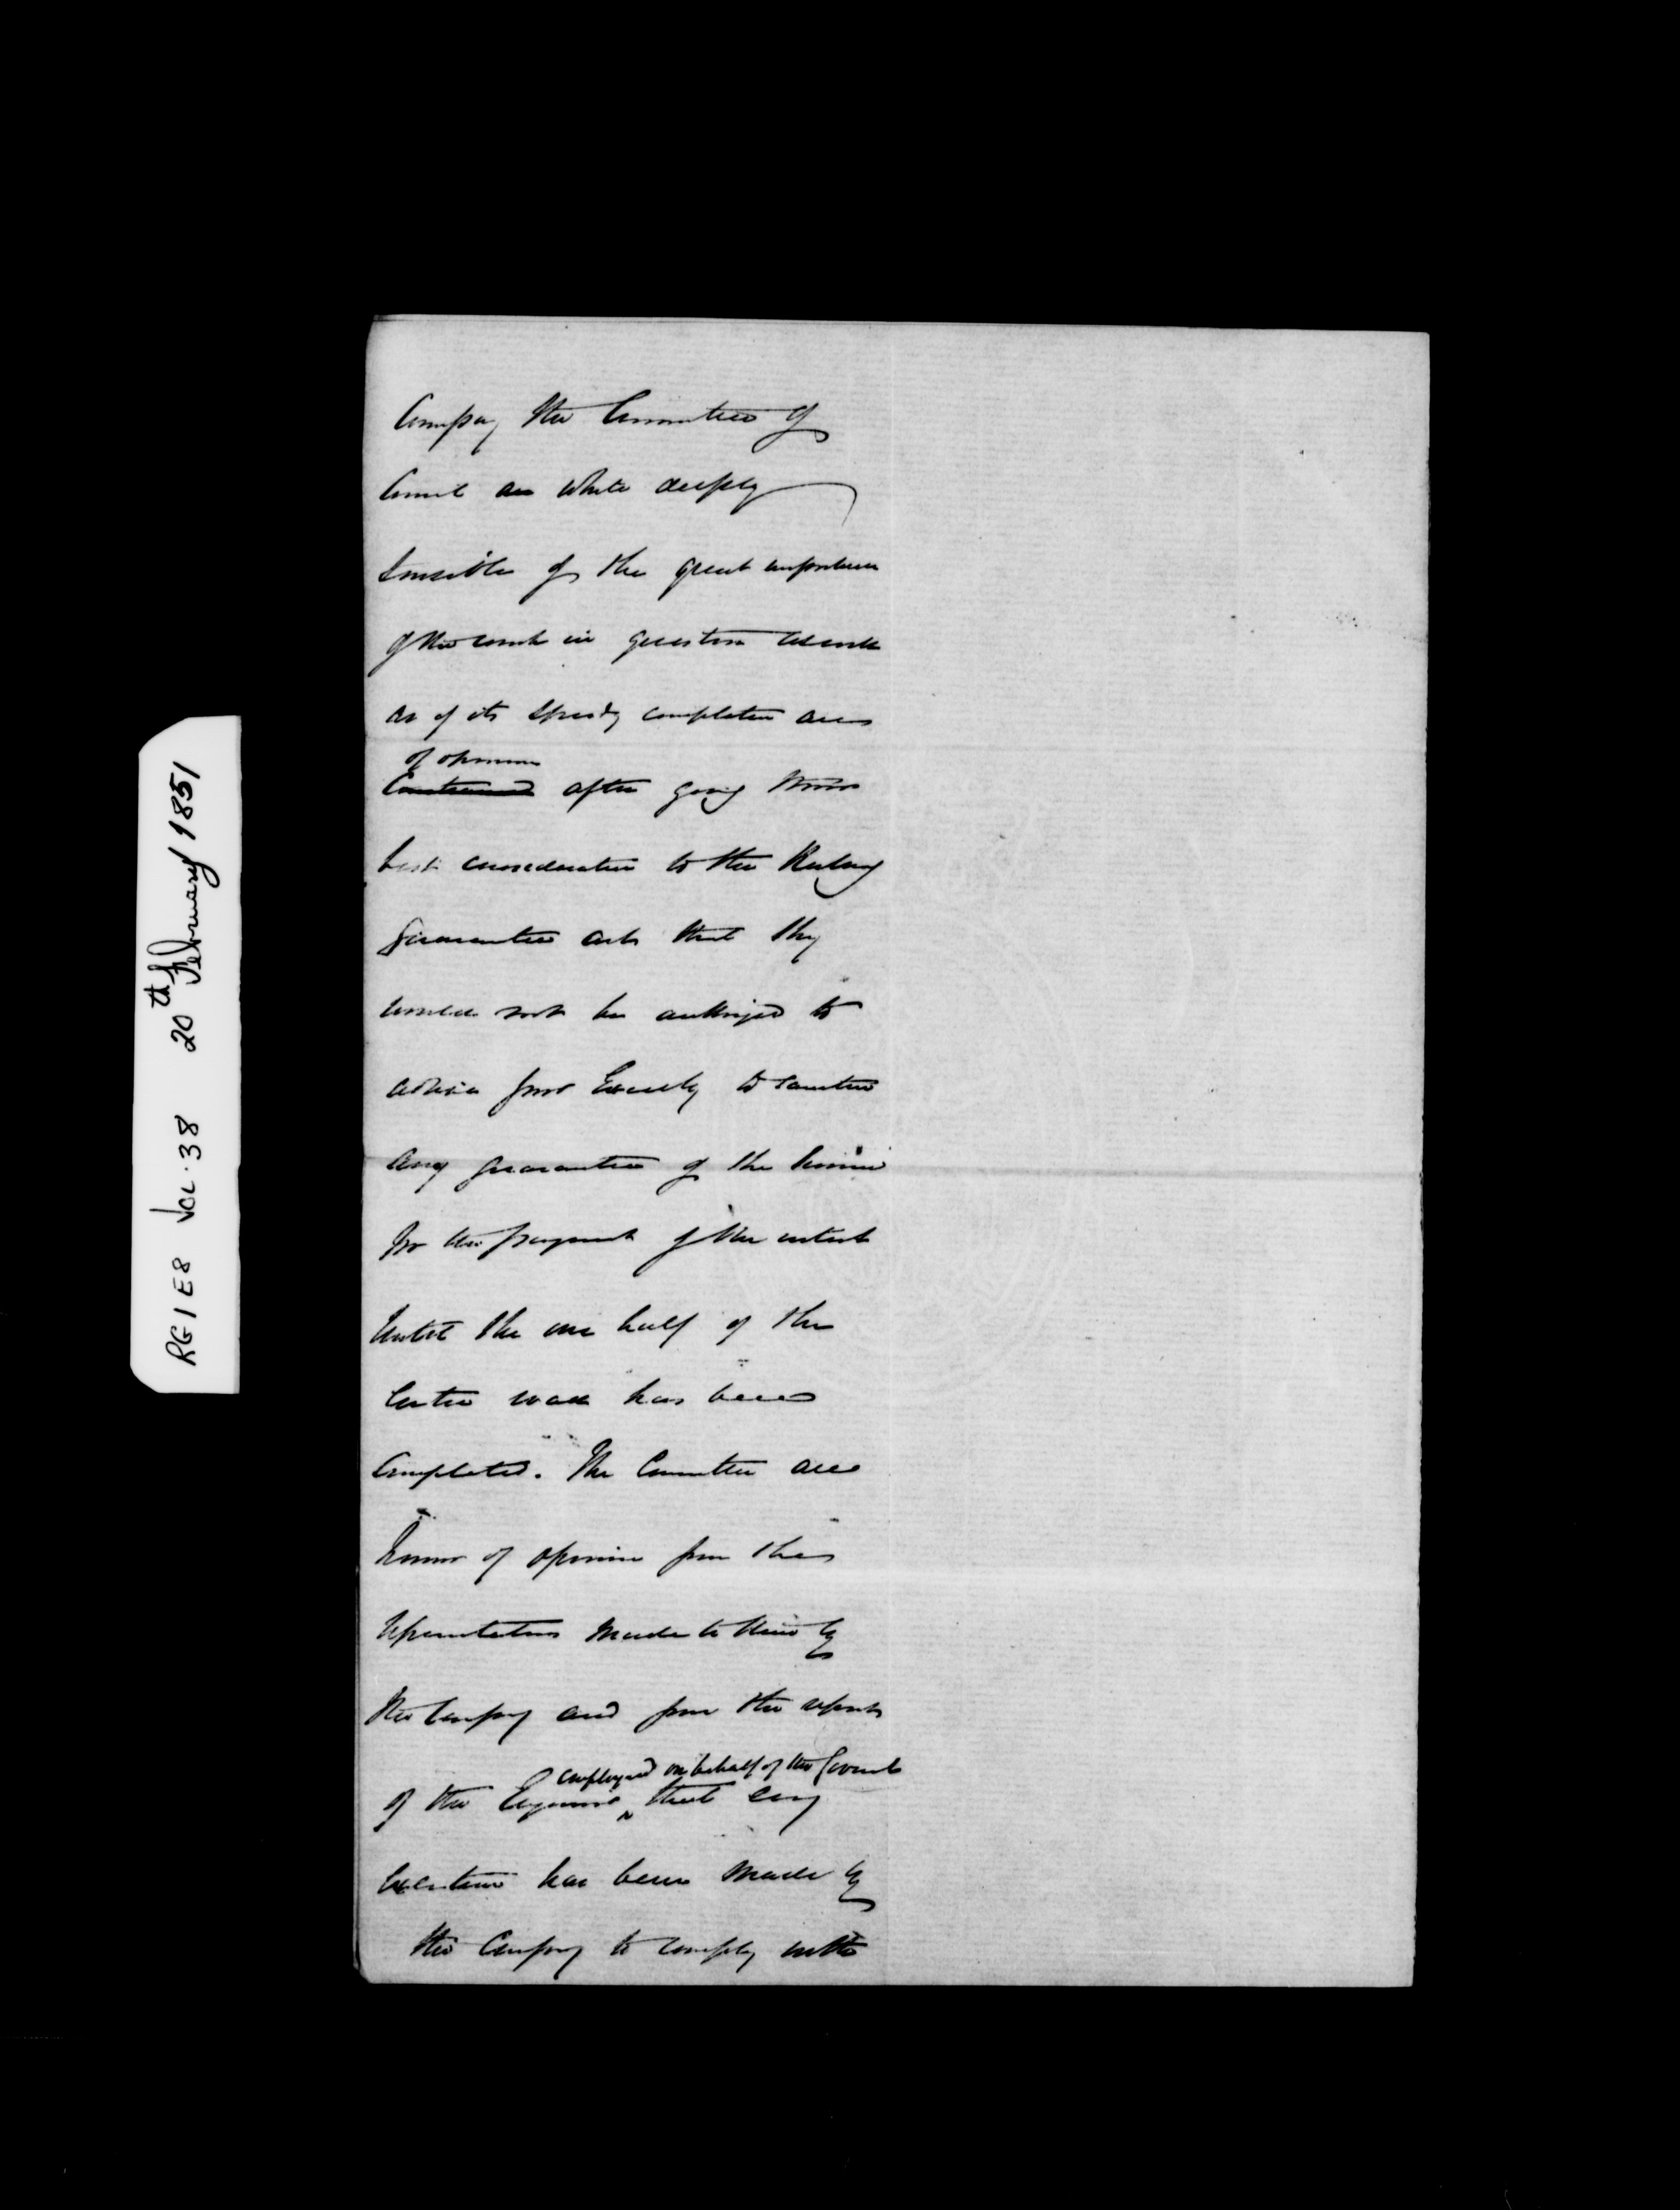 Company the Committee of
Council are while deeply
sensible of the great importance
of the work in question as well
as of its speedy completion are
of opinion
Constrained after giving their
best consideration to the Railway
Guarantee acts that they
would not be authorized to
advise Your Excellency to sanction
any guarantee of the Province
for the payment of the interest
until the one half of the
entire road has been
completed. The Committee are
however of opinion from the
representations made to them by
the Company and from the reports
employed on behalf of the Governt
of the Engineer that every
exertion has been made by
the Company to comply with
RG1E8 Vol. 38 20th February 1851